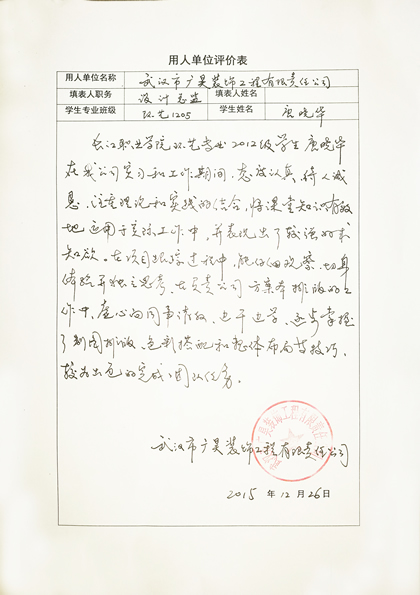 用人单位评价表
用人单位名称 武汉市广昊装饰工程有限责任公司
填表人职务 设计总监 填表人姓名
学生专业班级 环艺1205 学生姓名 唐晓华
长江职业学院环艺专业2012级学生唐晓华
在我公司实习和工作期间,态度认真,待人诚
恳,注重理论和实践的结合,将课堂知识有效
地运用于实际工作中,并表现出了较强的求
知欲。在项目跟踪过程中,能仔细观察、切身
体验并独立思考。在负责公司方案本排版的工
作中,虚心向同事请教,边干边学,逐步掌握
了制图排版、色彩搭配和整体布局等技巧,
较为出色的完成团队任务。
武汉市广昊装饰工程有限责任公司
2015 年 12 月 26 日